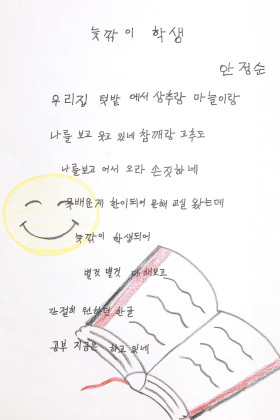 늦깎이 학생
안정순
우리집 텃밭에서 상추랑 마늘이랑
나를 보고 웃고 있네 참깨랑 고추도
나를보고 어서 오라 손짓하네
못배운게 한이되어 문해 교실 왔는데
늦깎이 학생되어
별것 별것 다 배보고
간절히 원하던 한글
공부 지금은 하고 있네